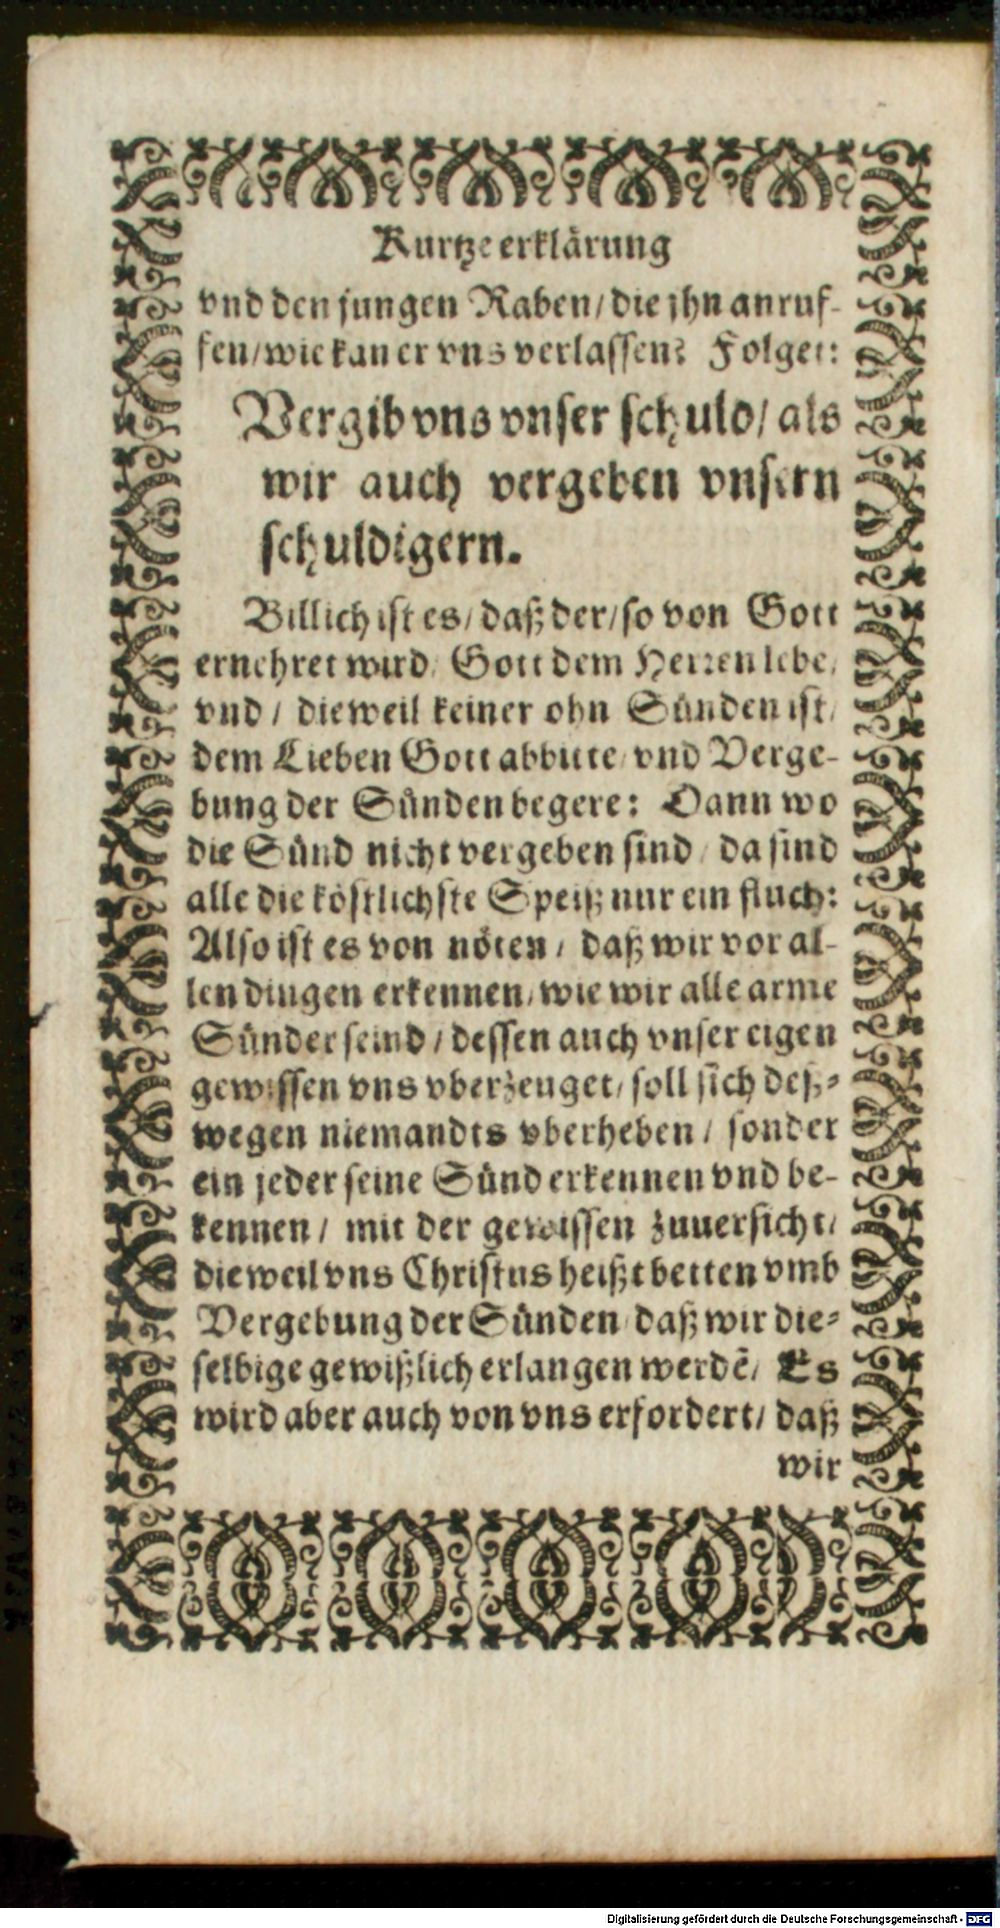 Kurtze erklärung
vnd den jungen Raben/ die jhn anruf-
fen/ wie kan er vns verlassen? Folget:
Vergib vns vnser schuld/ als
wir auch vergeben vnsern
schuldigern.
Billich ist es/ daß der/ so von Gott
ernehret wird/ Gott dem Herren lebe/
vnd/ dieweil keiner ohn Sünden ist/
dem Lieben Gott abbitte/ vnd Verge-
bung der Sünden begere: Dann wo
die Sünd nicht vergeben sind/ da sind
alle die köstlichste Speiß nur ein fluch:
Also ist es von nöten/ daß wir vor al-
len dingen erkennen/ wie wir alle arme
Sünder seind/ dessen auch vnser eigen
gewissen vns vberzeuget/ soll sich deß-
wegen niemandts vberheben/ sonder
ein jeder seine Sünd erkennen vnd be-
kennen/ mit der gewissen zuuersicht/
dieweil vns Christus heißt betten vmb
Vergebung der Sünden/ daß wir die-
selbige gewißlich erlangen werdẽ/ Es
wird aber auch von vns erfordert/ daß
wir
Digitalisierung gefördert durch die Deutsche Forschungsgemeinschaft - DFG